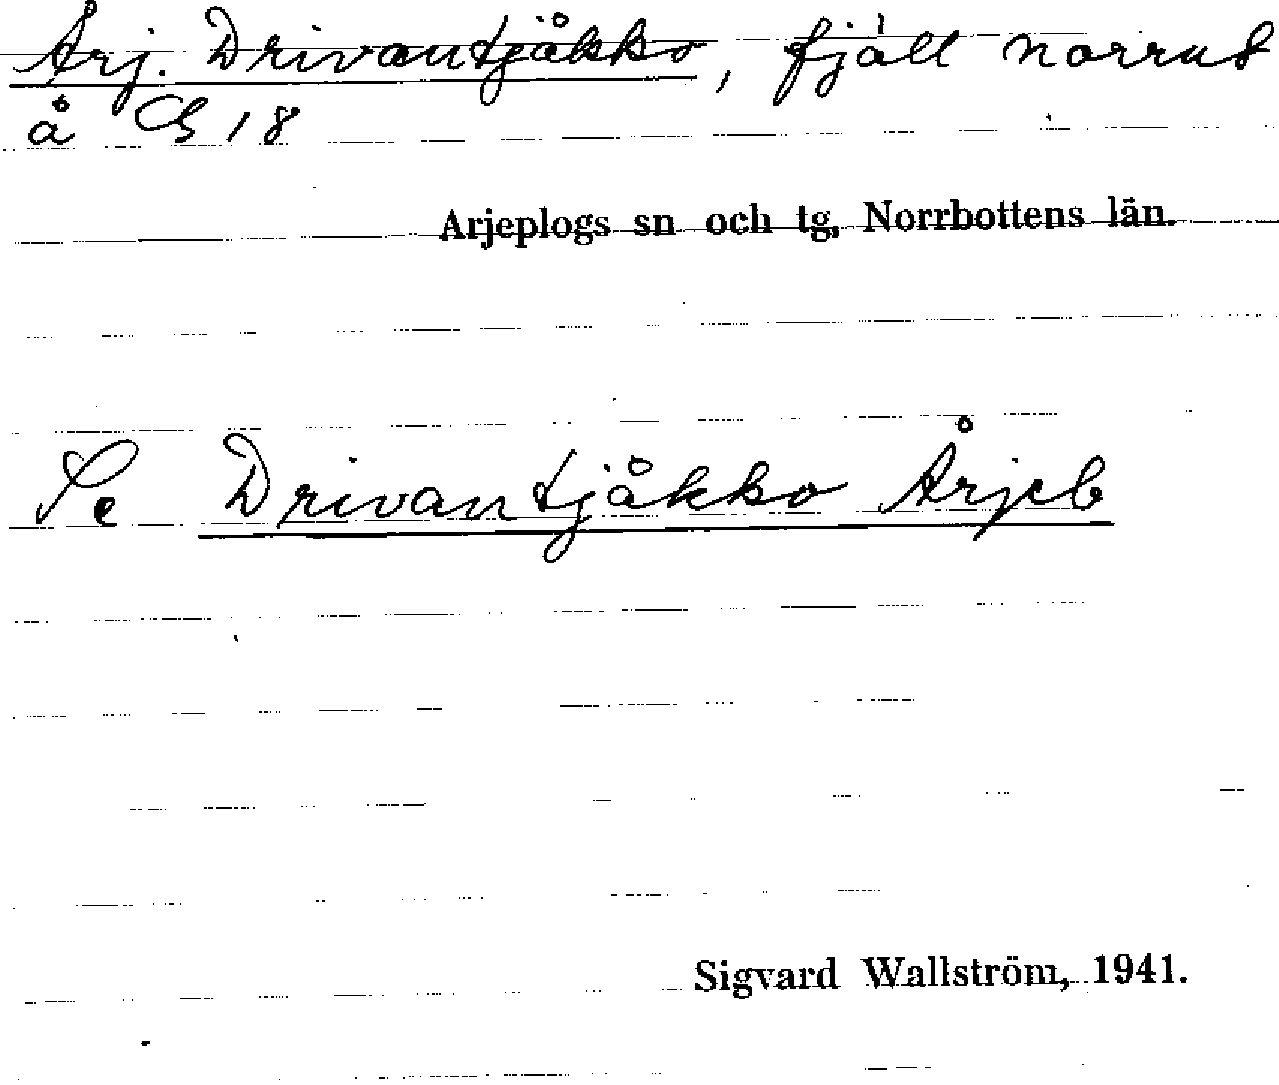 Årj. Drivantjåkko, fjäll norrut
å G 18
Arjeplogs sn och tg, Norrbottens län.
Se Drivantjåkko Årjeb
Sigvard Wallström, 1941.